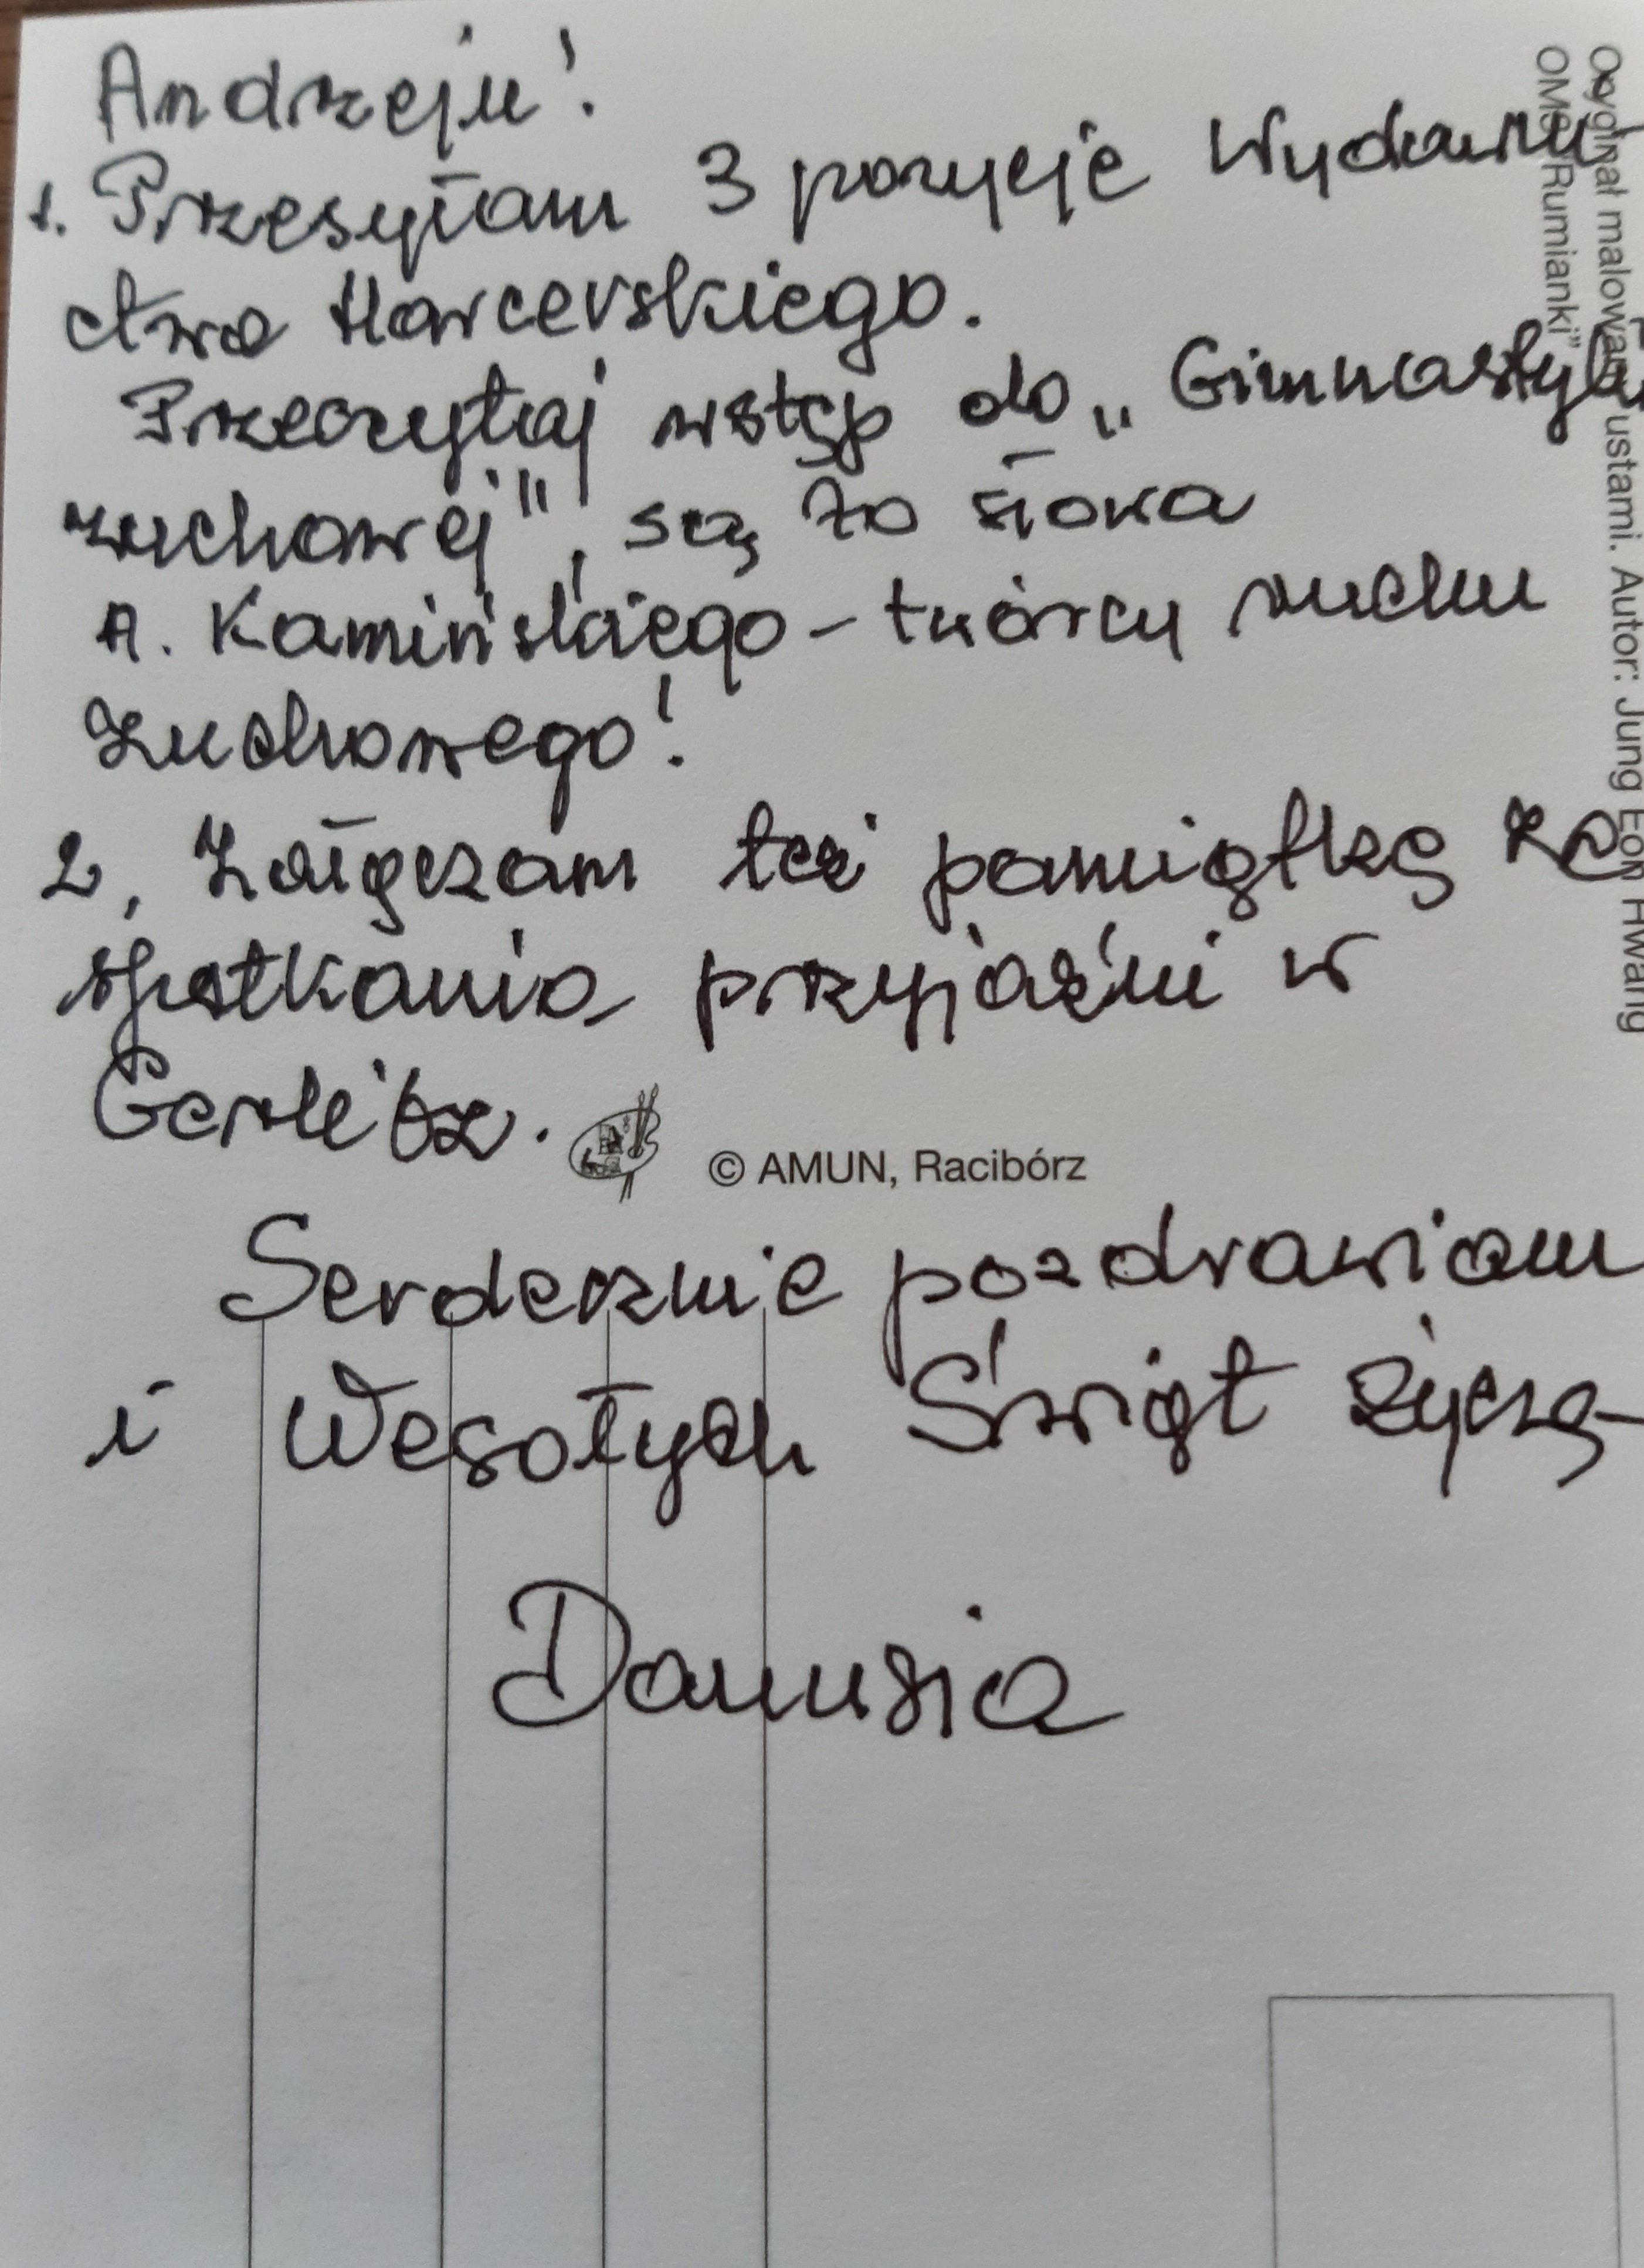 Andrzeju!
1. Przesyłam 3 pozycje Wydawni
ctwa Harcerskiego.
Przeczytaj wstęp do „Gimnastyki
zuchowej", są to słowa
A. Kamińskiego – twórcy ruchu
Zuchowego!
2, Załączam też pamiątkę ze
spotkania przyjaźni w
Gerlitz.
© AMUN, Racibórz
Serdecznie pozdrawiam
i Wesołych Świąt życzę
Danusia
Oryginał malowany ustami. Autor: Jung Eon Hwang
OMS "Rumianki"